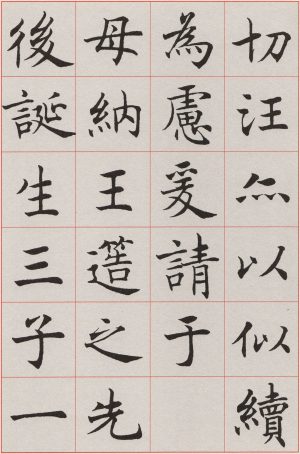 切汪亦以似續
為慮爰請于
母納王簉之先
後誕生三子一